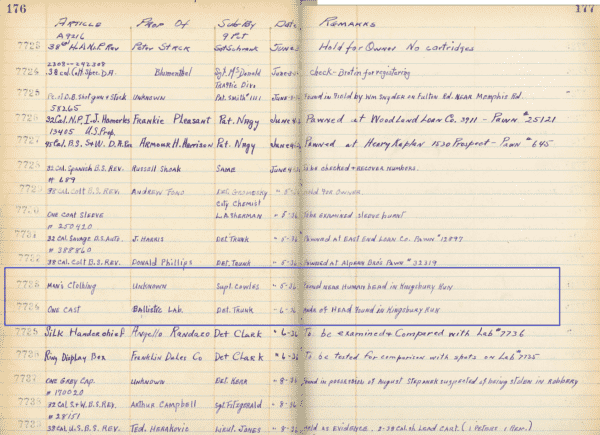 176 177
ARTICLE PROP OF SUB BY DATE REMARKS
A9216 9 Pct
7723 38cal H.A.N.P. Rev Peter Stack JUNE Hold for Owner No cartridges
38 cal. Colt Spec. D.A. Blumenthal Sgt. McDonald check-Brot in for registering
Traffic Divn
7725 D.B. Shotgun & Stock UNKNOWN Pat. Smith #1111 Found in Field by Wm Snyder on Fulton Rd. Near Memphis Rd.
58265
7726 32 Cal. N.P. I.J. Hamerles Frankie Pleasant Pat. Nagy JUNE Pawned at Woodland Loan Co. 3911 - Pawn # 25121
13405 U.S. Prop.
7727 45 Cal. B.S. S+W. D.A. Rev Armour H. Harrison Pat. Nagy JUNE Pawned at Henry Kaplan 1530 Prospect - Pawn # 645
7728 32 Cal. Spanish B.S. REV. Russell Shonk SAME JUNE To be checked & recover numbers.
# 689
7729 38 Cal. Colt B.S. REV. ANDREW " 5-36 Hold for owner
City Chemist
7730 ONE COAT SLEEVE L.A. SHERMAN " 5-36 To be examined sleeve burnt
# 250420
7731 32 Cal. Savage B.S. Auto J. HARRIS DET. TRUNK " 5-36 Pawned at East End Loan Co. Pawn # 12897
# 388860
7732 38 Cal. Colt B.S. REV. DONALD Phillips DET. TRUNK " 5-36 Pawned at Alpern Bro's Pawn # 32319
7733 MAN'S Clothing UNKNOWN Supt. Cowles " 5-36 Found NEAR HUMAN HEAD IN KINGSBURY RUN
7734 ONE CAST Ballistic LAB. DET. TRUNK " 6-36 made of HEAD Found IN Kingsbury RUN
7735 Silk Handerchief Angello Randaco Det Clark " 6-36 To be examined & Compared with Lab # 7736
7736 Ring Display Box Franklin Dales Co Det Clark " 6-36 To be tested for comparison with spots on Lab # 7735
7737 ONE GREY CAP. UNKNOWN DET. KERR " 8-36 Found in possession of August Stepanek suspected of being stolen in Robbery
# 170020
7738 32 Cal. S.+W. B.S. REV. Arthur Campbell Sgt Fitzgerald " 8-36
# 28151
38 Cal. U.S. B.S. REV. TED. HERAKOVIC Lieut. JONES " 8-36 Held as EVIDENCE. 2-38 Cal. sh. Lead Cart. (1 Peters 1 Rem.)